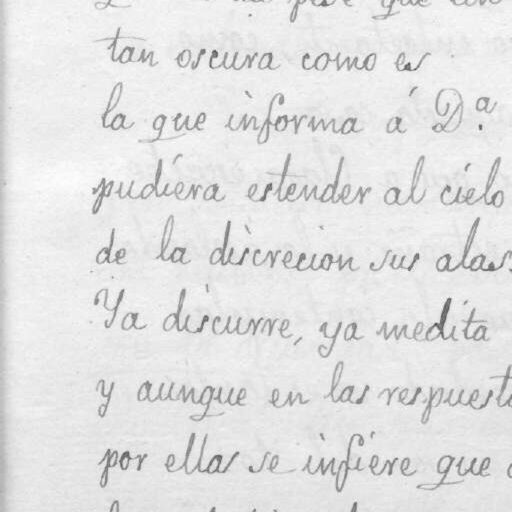 que
tan oscura como es
la que informa á D.ª
pudiera estender al cielo
de la discrecion sus alas.
Ya discurre, ya medita
y aunque en las respuest
por ellas se infiere que